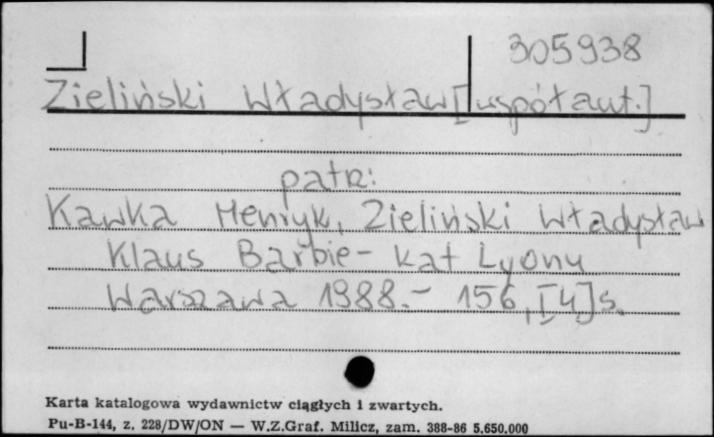 305938
Zieliński Władysław [współaut.]
patrz:
Kawka Henryk, Zieliński Władysław
Klaus Barbie - kat Lyonu
Warszawa 1988. - 156, [4] s.
Karta katalogowa wydawnictw ciągłych i zwartych.
Pu-B-144, z. 228/DW/ON — W.Z.Graf. Milicz, zam. 388-86 5.650.000